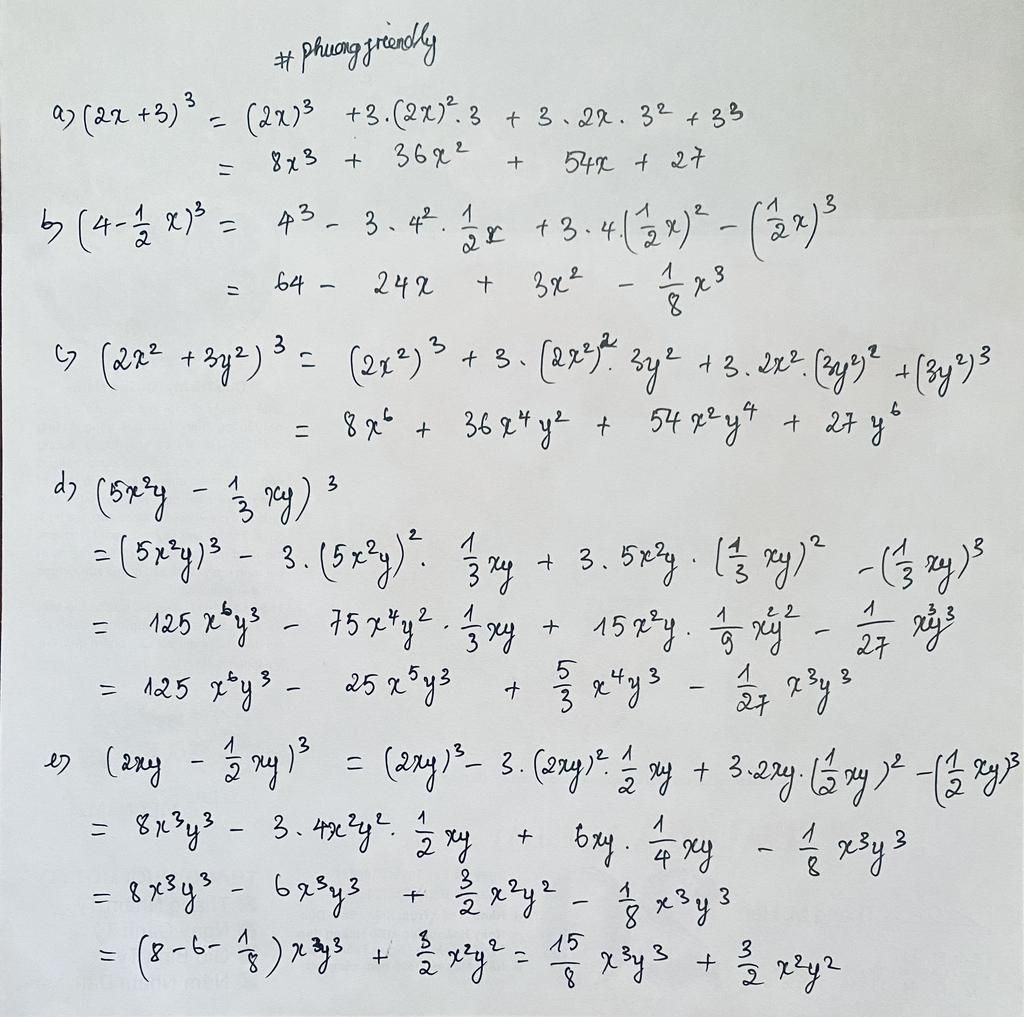 # phuongfriendly
a) (2x + 3)³ = (2x)³ + 3.(2x)².3 + 3.2x.3² + 3³
= 8x³ + 36x² + 54x + 27
b) (4 - 1/2 x)³ = 4³ - 3.4².1/2 x + 3.4(1/2 x)² - (1/2 x)³
= 64 - 24x + 3x² - 1/8 x³
c) (2x² + 3y²)³ = (2x²)³ + 3.(2x²)².3y² + 3.2x².(3y²)² + (3y²)³
= 8x⁶ + 36x⁴y² + 54x²y⁴ + 27y⁶
d) (5x²y - 1/3 xy)³
= (5x²y)³ - 3.(5x²y)².1/3 xy + 3.5x²y.(1/3 xy)² - (1/3 xy)³
= 125x⁶y³ - 75x⁴y².1/3 xy + 15x²y.1/9 x²y² - 1/27 x³y³
= 125x⁶y³ - 25x⁵y³ + 5/3 x⁴y³ - 1/27 x³y³
e) (2xy - 1/2 xy)³ = (2xy)³ - 3.(2xy)².1/2 xy + 3.2xy.(1/2 xy)² - (1/2 xy)³
= 8x³y³ - 3.4x²y².1/2 xy + 6xy.1/4 xy - 1/8 x³y³
= 8x³y³ - 6x³y³ + 3/2 x²y² - 1/8 x³y³
= (8 - 6 - 1/8)x³y³ + 3/2 x²y² = 15/8 x³y³ + 3/2 x²y²